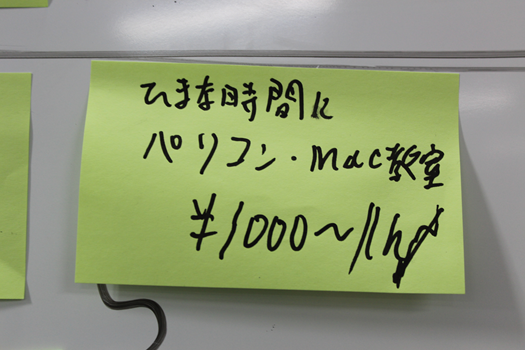 ひまな時間に
パソコン・Mac教室
¥1000〜/1h